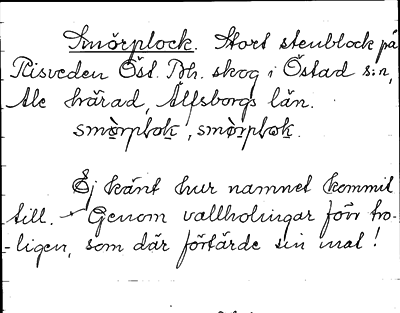 Smörplock. Stort stenblock på
Risveden Öst. Bh. skog i Östad s:n,
Ale härad, Älfsborgs län.
smörplok, smörplok.
Ej känt hur namnet kommit
till. Genom vallholningar förr tro-
-ligen, som där förtärde sin mat!